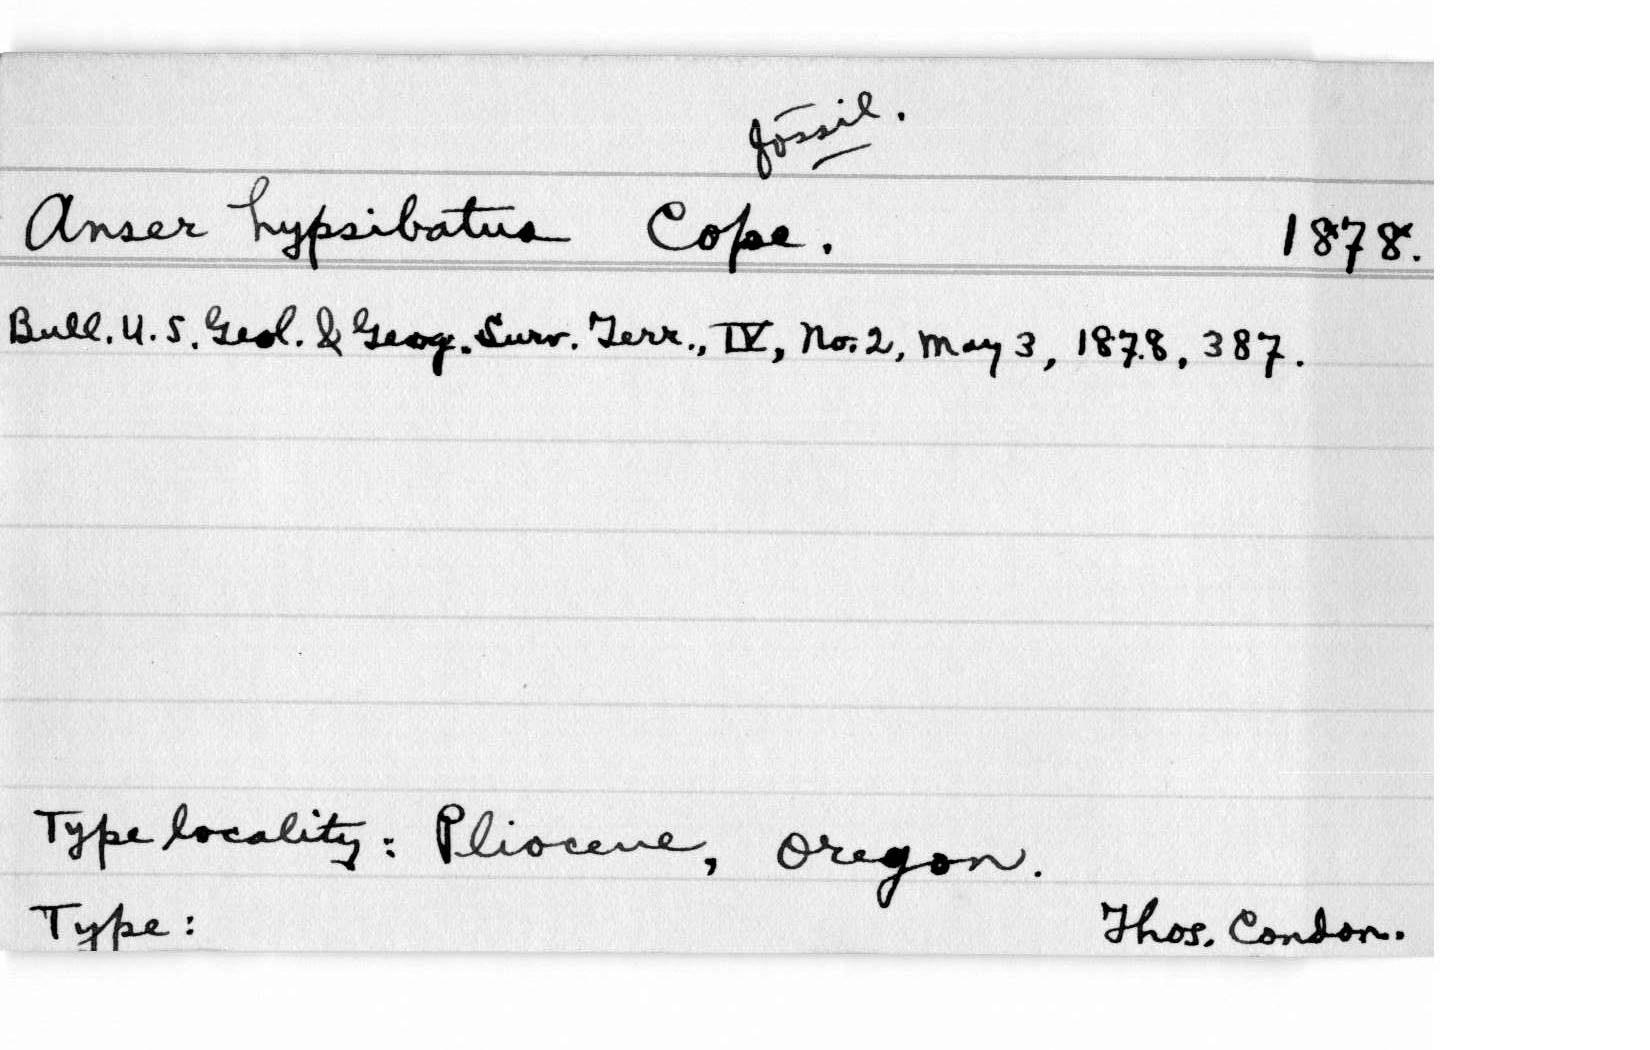 fossil.
Anser hypsibatus Cope. 1878.
Bull. U. S. Geol. & Geog. Surv. Terr., IV, No. 2, May 3, 1878, 387.
Type locality: Pliocene, Oregon.
Type: Thos. Condon.